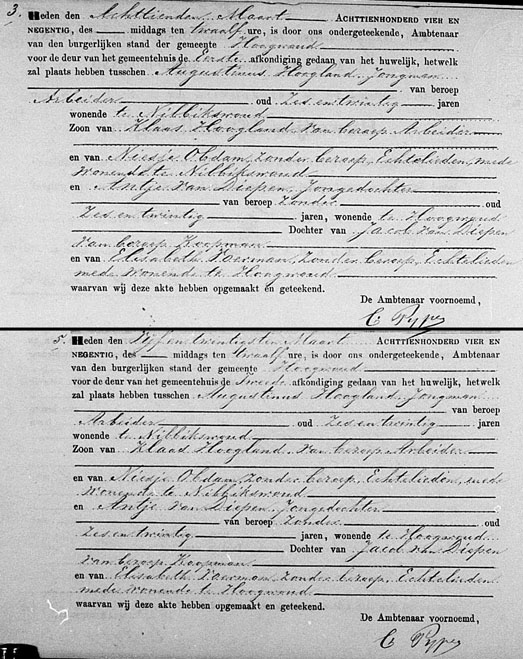 3.
Heden den Achttienden Maart ACHTTIENHONDERD VIER EN
NEGENTIG, des middags ten twaalf ure, is door ons ondergeteekende, Ambtenaar
van den burgerlijken stand der gemeente Hoogwoud
voor de deur van het gemeentehuis de Eerste afkondiging gedaan van het huwelijk, hetwelk
zal plaats hebben tusschen Augustinus Hoogland, Jongman
van beroep
Arbeider oud Zes en twintig jaren
wonende te Nibbikswoud
Zoon van Klaas Hoogland, van beroep Arbeider
en van Niesje Obdam, Zonder beroep, Echtelieden, mede
wonende te Nibbikswoud
en Antje van Diepen, Jongedochter
van beroep Zonder oud
Zes en twintig jaren, wonende te Hoogwoud
Dochter van Jacob van Diepen
van beroep Koopman
en van Elisabeth Vaerman, Zonder beroep, Echtelieden
mede wonende te Hoogwoud
waarvan wij deze akte hebben opgemaakt en geteekend.
De Ambtenaar voornoemd,
5.
Heden den Vijf en twintigsten Maart ACHTTIENHONDERD VIER EN
NEGENTIG, des middags ten twaalf ure, is door ons ondergeteekende, Ambtenaar
van den burgerlijken stand der gemeente Hoogwoud
voor de deur van het gemeentehuis de Tweede afkondiging gedaan van het huwelijk, hetwelk
zal plaats hebben tusschen Augustinus Hoogland, Jongman
van beroep
Arbeider oud Zes en twintig jaren
wonende te Nibbikswoud
Zoon van Klaas Hoogland, van beroep Arbeider
en van Niesje Obdam, Zonder beroep, Echtelieden, mede
wonende te Nibbikswoud
en Antje van Diepen, Jongedochter
van beroep Zonder oud
Zes en twintig jaren, wonende te Hoogwoud
Dochter van Jacob van Diepen
van beroep Koopman
en van Elisabeth Vaerman, Zonder beroep, Echtelieden
mede wonende te Hoogwoud
waarvan wij deze akte hebben opgemaakt en geteekend.
De Ambtenaar voornoemd,